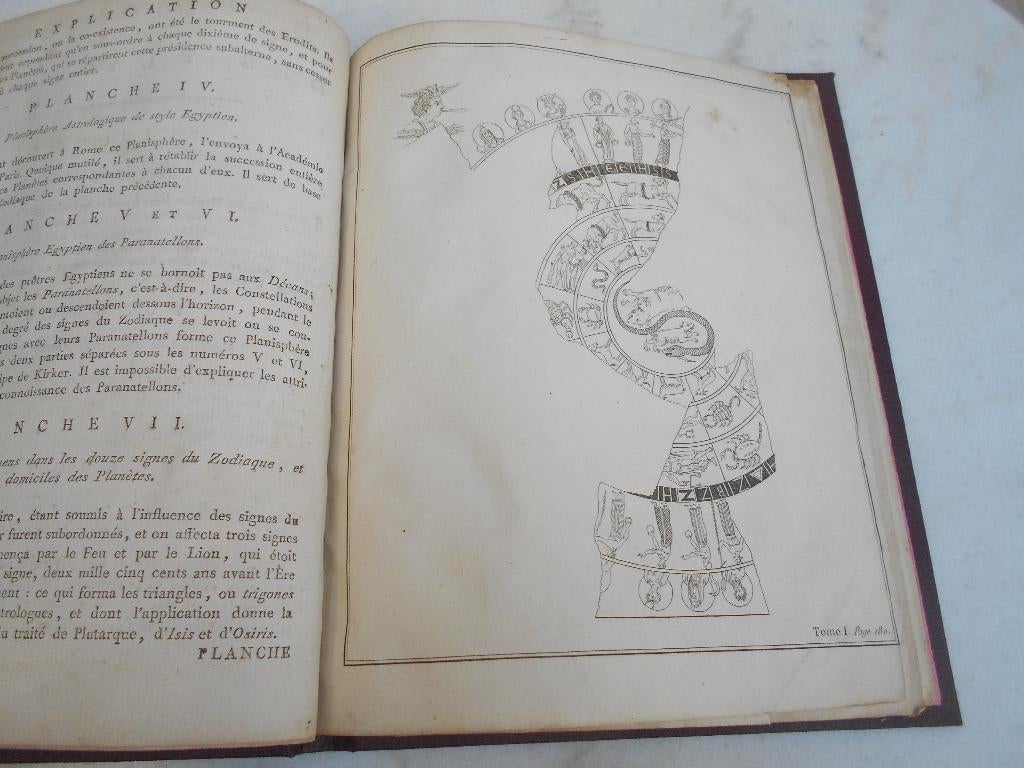 EXPLICATION
succession, ou la co-existence, ont été le tourment des Erudits. Ils
cependant qu'en sous-ordre à chaque dixième de signe, et pour
Planètes, qui se répartirent cette présidence subalterne, sans cesser
à chaque signe entier.
PLANCHE IV.
Planisphère Astrologique de style Egyptien.
découvert à Rome ce Planisphère, l'envoya à l'Académie
Paris. Quoique mutilé, il sert à rétablir la succession entière
Planètes correspondantes à chacun d'eux. Il sert de base
Zodiaque de la planche précédente.
ANCHE V ET VI.
nisphère Egyptien des Paranatellons.
des prêtres Egyptiens ne se bornoit pas aux Décans;
objet les Paranatellons, c'est-à-dire, les Constellations
ntoient ou descendoient dessous l'horizon, pendant le
degré des signes du Zodiaque se levoit ou se cou-
gnes avec leurs Paranatellons forme ce Planisphère
s deux parties séparées sous les numéros V et VI,
ipe de Kirker. Il est impossible d'expliquer les attri-
connoissance des Paranatellons.
NCHE VII.
mens dans les douze signes du Zodiaque, et
domiciles des Planètes.
ire, étant soumis à l'influence des signes du
r furent subordonnés, et on affecta trois signes
mença par le Feu et par le Lion, qui étoit
signe, deux mille cinq cents ans avant l'Ère
ment: ce qui forma les triangles, ou trigones
trologues, et dont l'application donne la
u traité de Plutarque, d'Isis et d'Osiris.
PLANCHE
Tome I. Page 180.